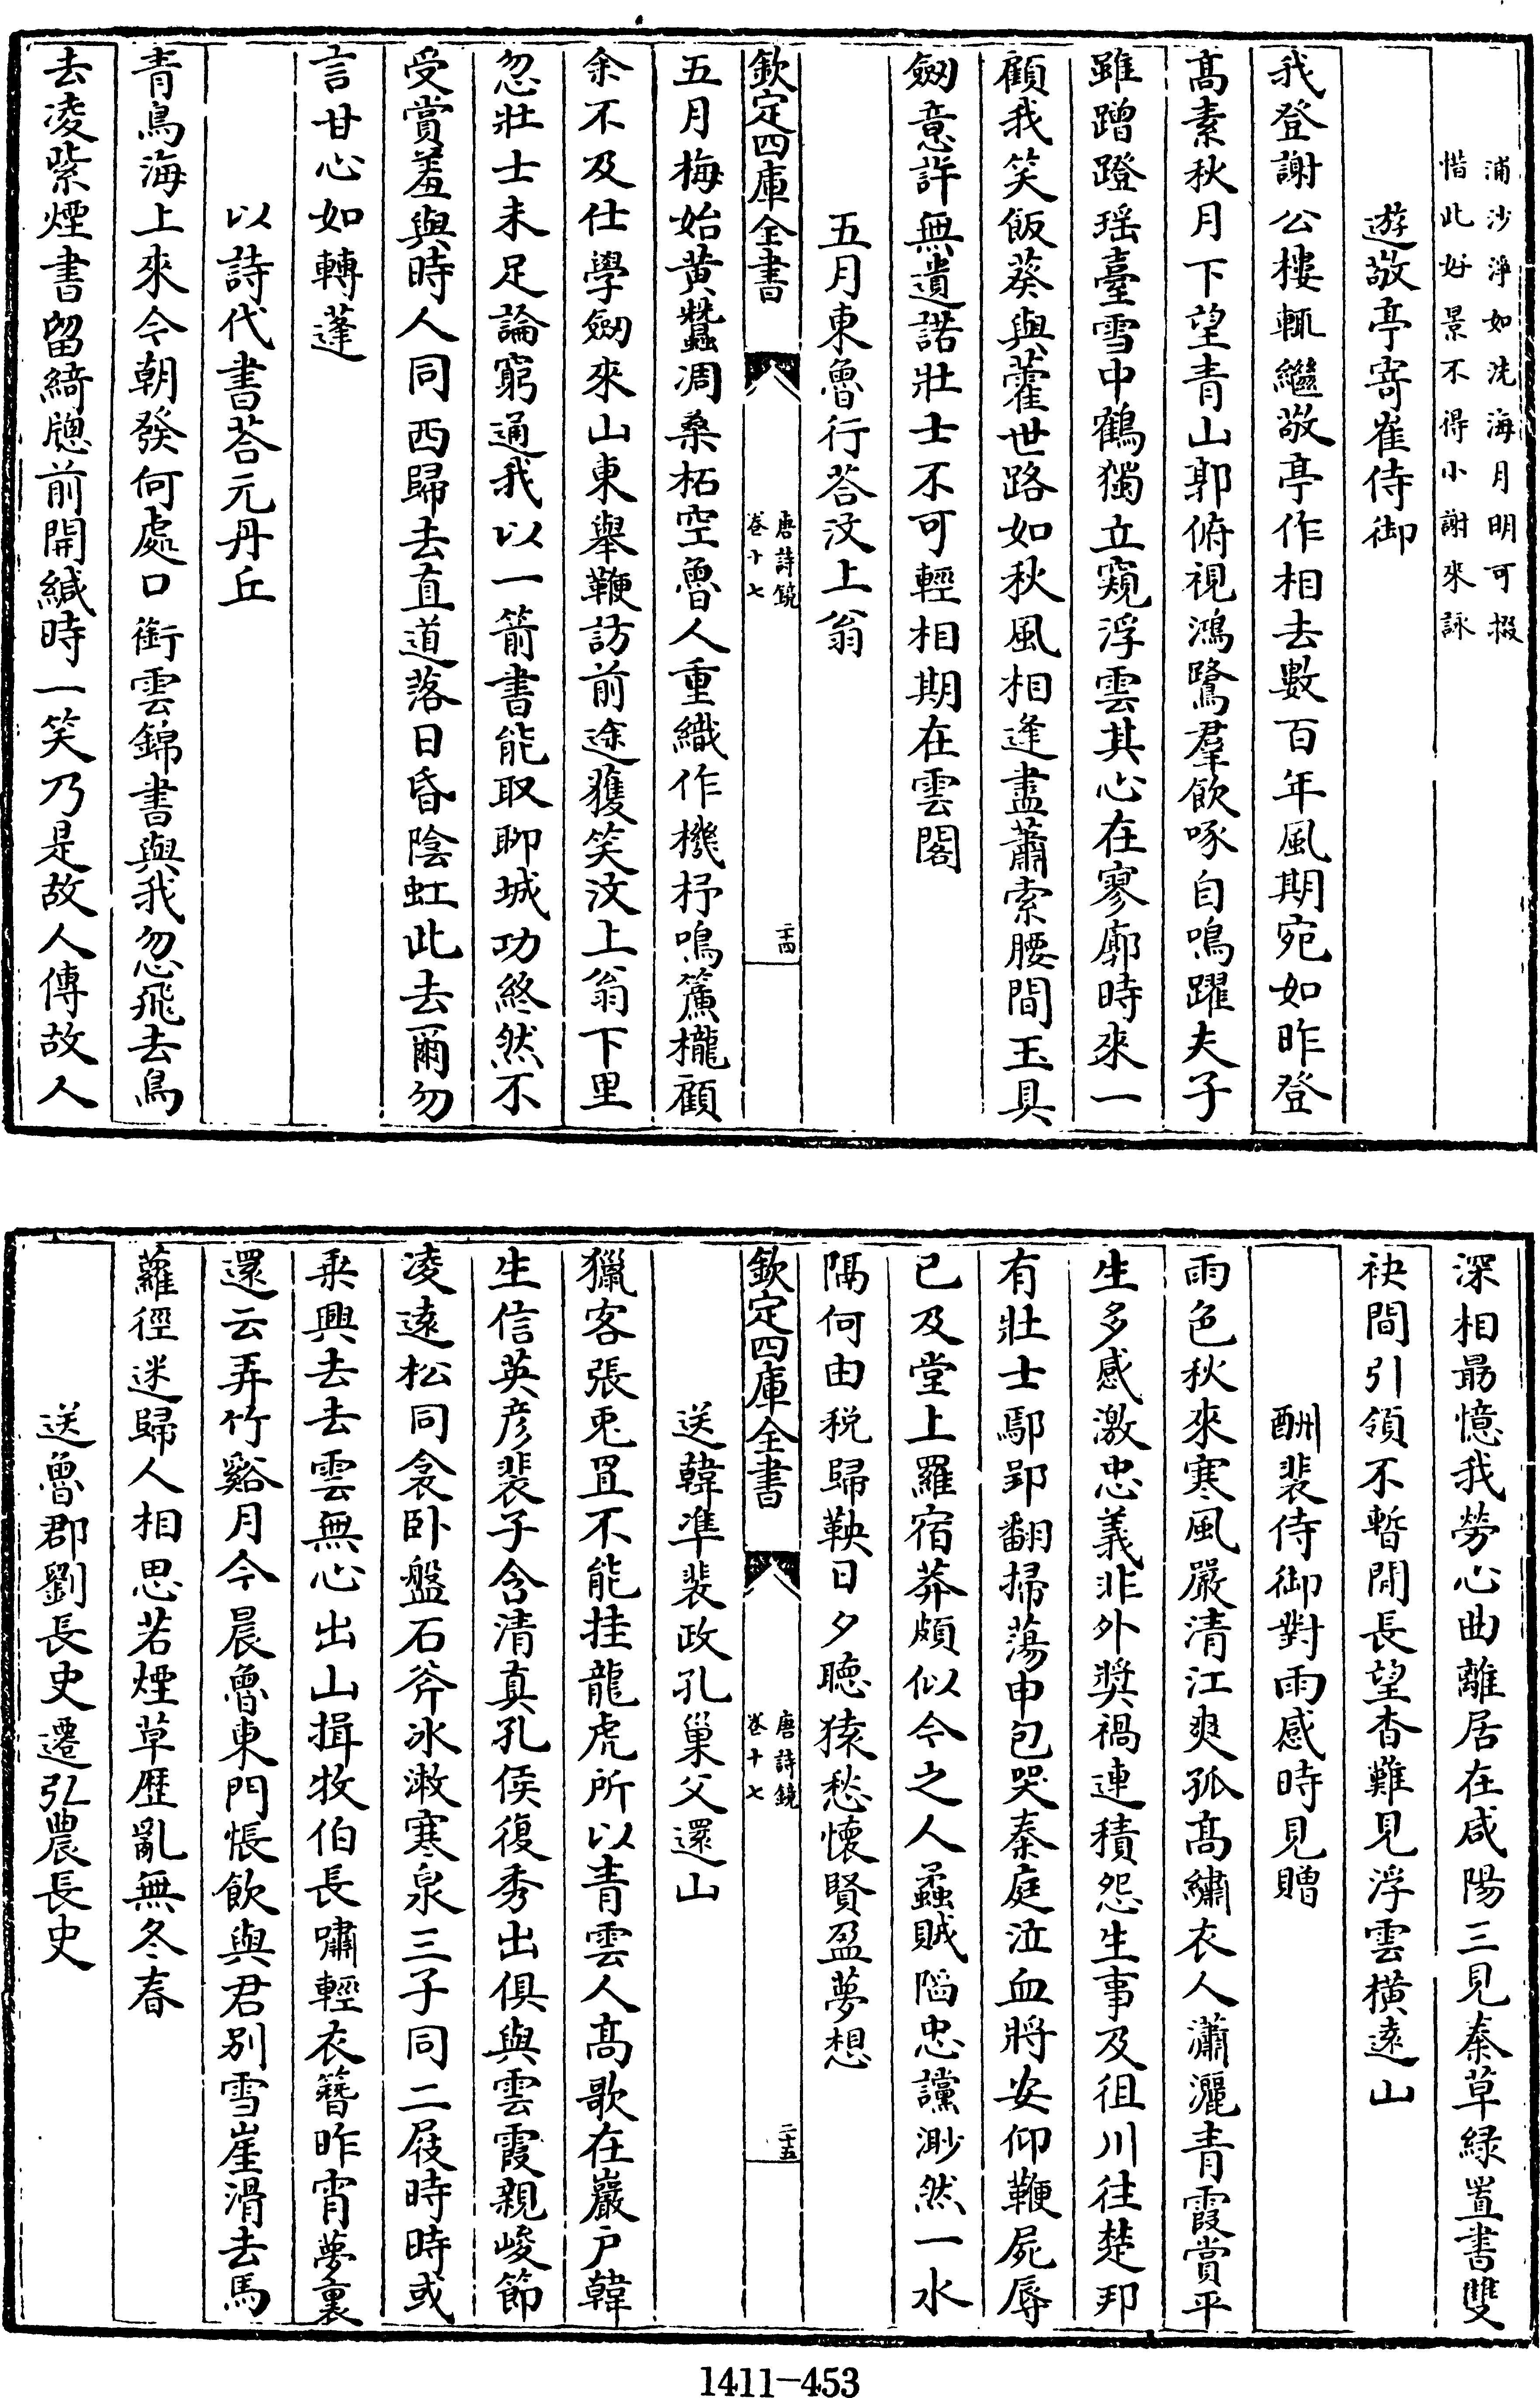 浦沙淨如洗海月明可掇
惜此好景不得小謝來詠
遊敬亭寄崔侍御
我登謝公樓輒繼敬亭作相去數百年風期宛如昨登
髙素秋月下望青山郭俯視鴻鷺羣飲啄自鳴躍夫子
雖蹭蹬瑶臺雪中鶴獨立窺浮雲其心在寥廓時來一
顧我笑飯葵與藿世路如秋風相逢盡蕭索腰間玉具
劒意許無遺諾壯士不可輕相期在雲閣
五月東魯行荅汶上翁
欽定四庫全書
唐詩鏡
卷十七
二十四
五月梅始黄蠶凋桑柘空魯人重織作機杼鳴簾櫳顧
余不及仕學劒來山東舉鞭訪前途獲笑汶上翁下里
忽壯士未足論窮通我以一箭書能取聊城功終然不
受賞羞與時人同西歸去直道落日昏陰虹此去爾勿
言甘心如轉蓬
以詩代書荅元丹丘
青鳥海上來今朝發何處口銜雲錦書與我忽飛去鳥
去凌紫煙書留綺牕前開緘時一笑乃是故人傳故人
深相勗憶我勞心曲離居在咸陽三見秦草緑置書雙
袂間引領不暫閒長望杳難見浮雲横遠山
酬裴侍御對雨感時見贈
雨色秋來寒風嚴清江爽孤髙繡衣人瀟灑青霞賞平
生多感激忠義非外奬禍連積怨生事及徂川往楚邦
有壯士鄢郢翻掃蕩申包哭秦庭泣血將安仰鞭屍辱
已及堂上羅宿莽頗似今之人蟊賊陷忠讜渺然一水
隔何由税歸鞅日夕聴猿愁懷賢盈夢想
欽定四庫全書
唐詩鏡
卷十七
二十五
送韓凖裴政孔巢父還山
獵客張兎罝不能挂龍虎所以青雲人髙歌在巖户韓
生信英彦裴子含清真孔侯復秀出俱與雲霞親峻節
凌逺松同衾卧盤石斧冰漱寒泉三子同二屐時時或
乘興去去雲無心出山揖牧伯長嘯輕衣簪昨宵夢裏
還云弄竹谿月今晨魯東門悵飲與君别雪崖滑去馬
蘿徑迷歸人相思若煙草歴亂無冬春
送魯郡劉長史遷弘農長史
1411-453